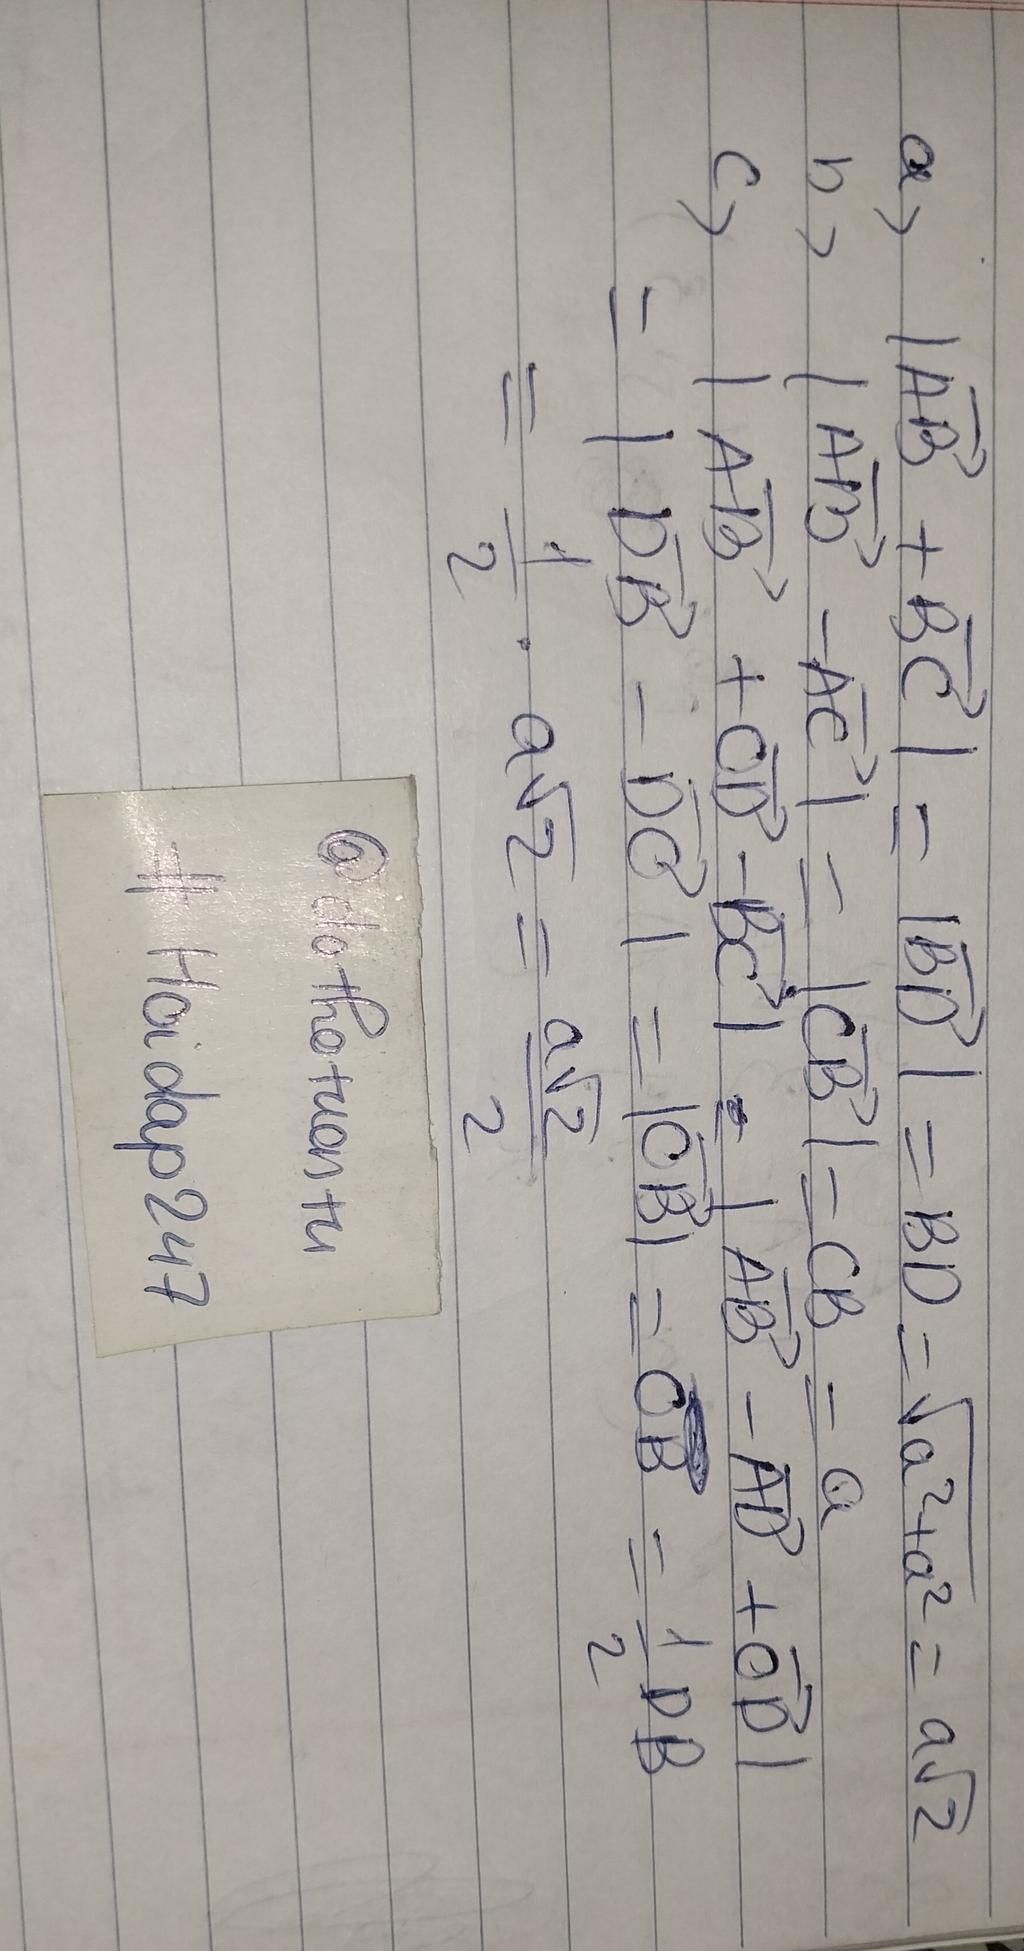 a> |AB→ + BC→| = |BD→| = BD = √(a²+a²) = a√2
b> |AB→ - AC→| = |CB→| = CB = a
c> |AB→ + OD→ - BC→| = |AB→ - AD→ + OD→|
= |DB→ - DO→| = |OB→| = OB = 1/2 DB
= 1/2 . a√2 = a√2/2
@dothotuantu
# Hoidap247